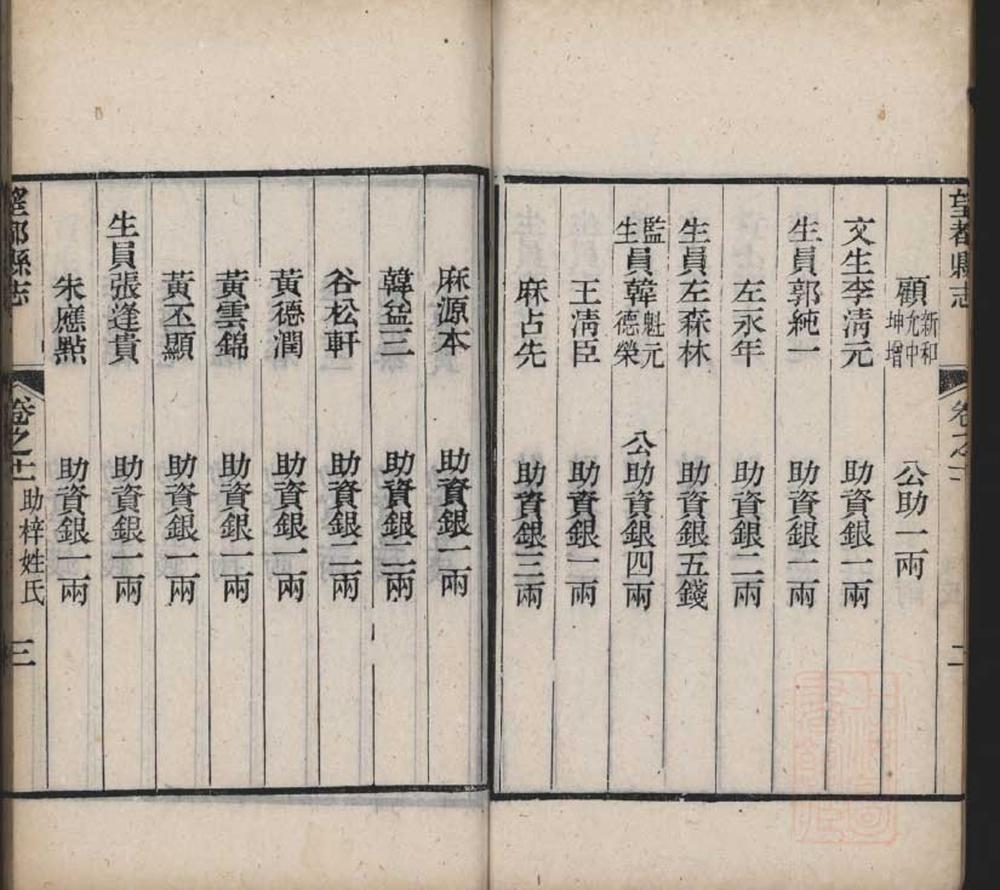 望都縣志
卷之十 二
顧新和允中坤增 公助一兩
文生李淸元 助資銀一兩
生員郭純一 助資銀一兩
左永年 助資銀二兩
生員左森林 助資銀五錢
監生員韓魁元德榮 公助資銀四兩
王淸臣 助資銀一兩
麻占先 助資銀三兩
麻源本 助資銀一兩
韓益三 助資銀二兩
谷松軒 助資銀二兩
黃德潤 助資銀一兩
黃雲錦 助資銀一兩
黃丕顯 助資銀一兩
生員張逢貴 助資銀一兩
朱應點 助資銀一兩
望都縣志
卷之十 助梓姓氏 三